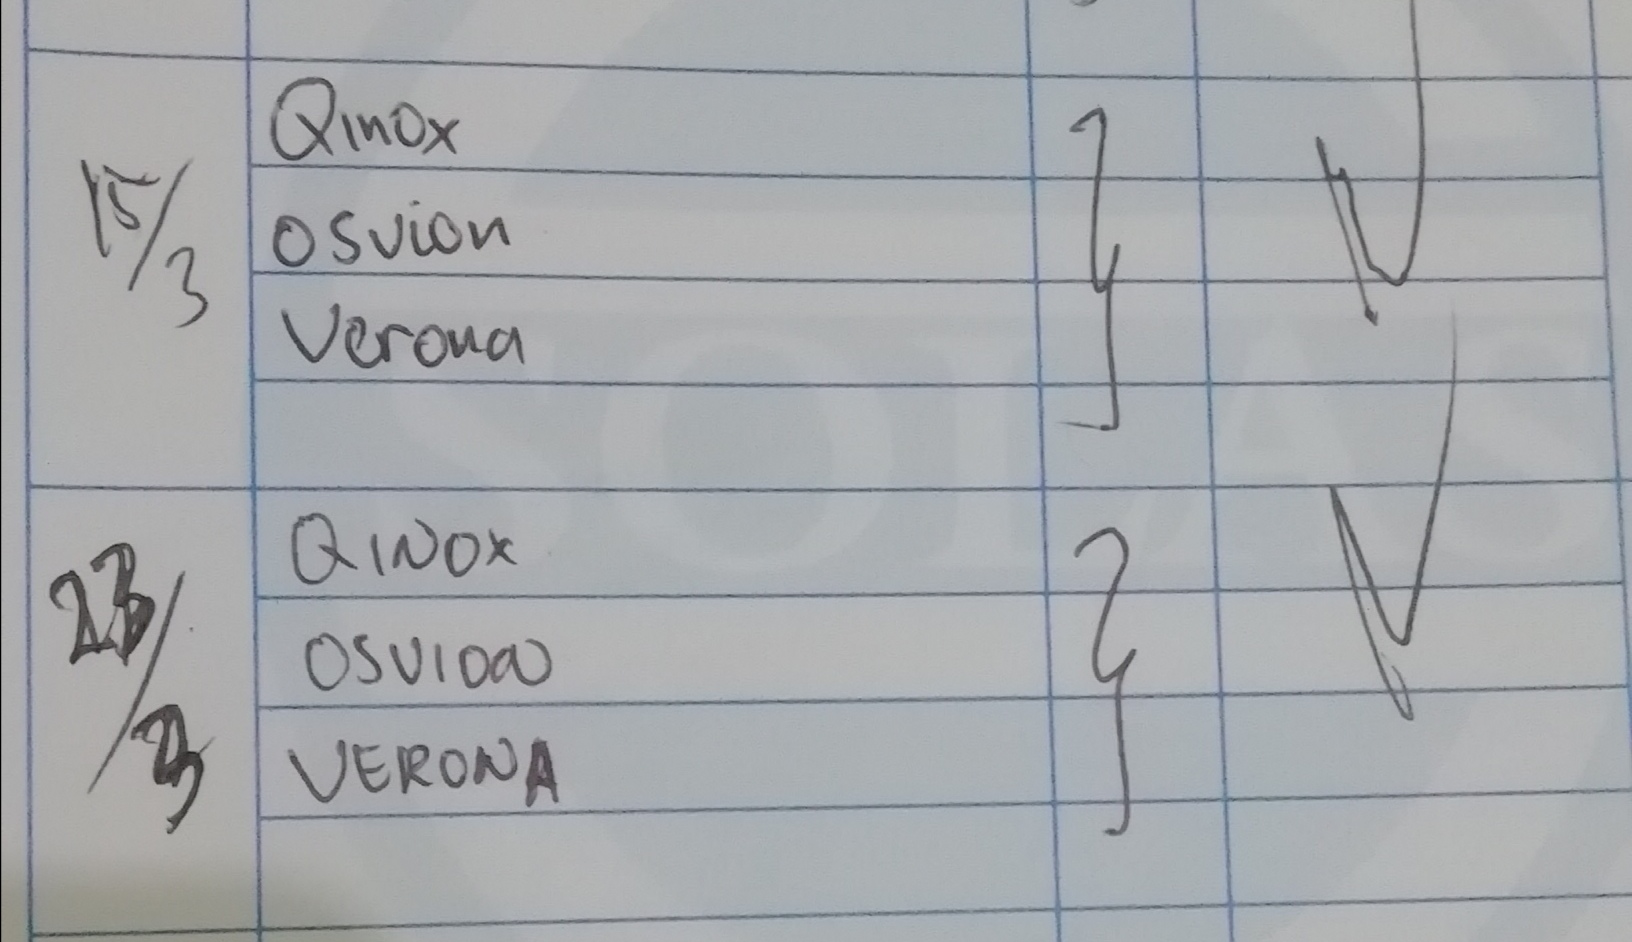 15/3
Qinox
Osvion
Verona
23/3
QINOX
OSVION
VERONA
SOLAS